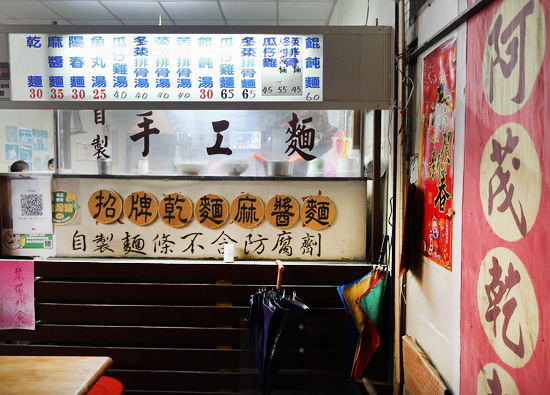 乾麵 30
麻醬麵 35
陽春麵 30
魚丸湯 25
瓜仔雞湯 40
冬菜排骨湯 40
菜排骨湯 40
苦排骨湯 40
餛飩湯 30
瓜仔雞麵 65
冬菜排骨麵 65
瓜仔雞 45
餛飩麵 60
自製
手工麵
招牌乾麵麻醬麵
自製麵條不含防腐劑
禁帶外食
阿茂乾